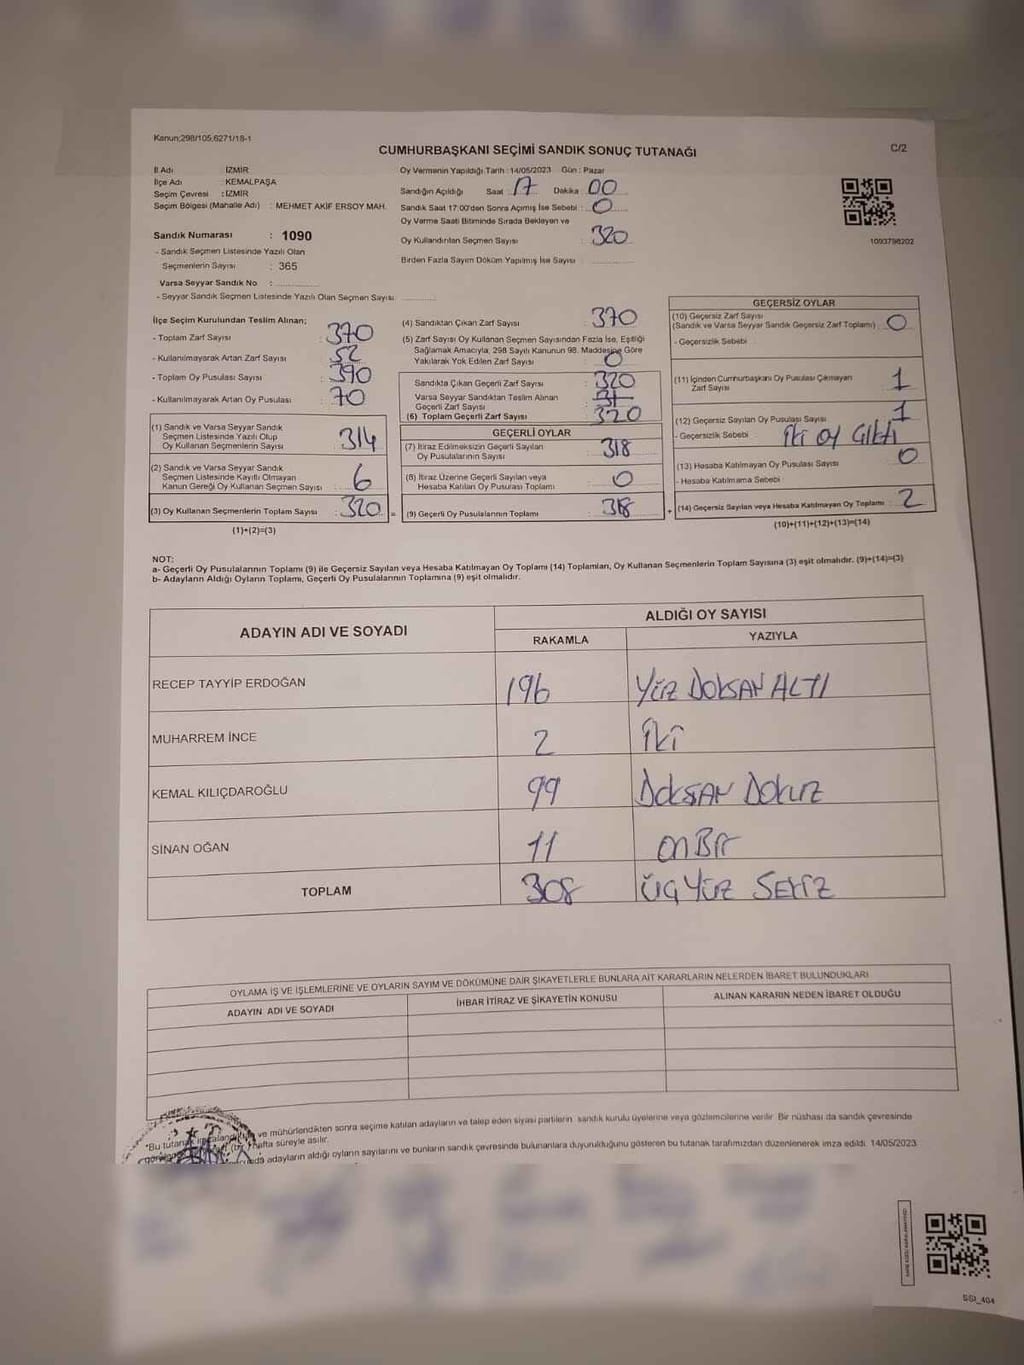 Kanun:298/105,6271/18-1
CUMHURBAŞKANI SEÇİMİ SANDIK SONUÇ TUTANAĞI
C/2
İl Adı : İZMİR
İlçe Adı : KEMALPAŞA
Seçim Çevresi : İZMİR
Seçim Bölgesi (Mahalle Adı) : MEHMET AKİF ERSOY MAH.
Sandık Numarası : 1090
- Sandık Seçmen Listesinde Yazılı Olan
Seçmenlerin Sayısı : 365
Varsa Seyyar Sandık No :
- Seyyar Sandık Seçmen Listesinde Yazılı Olan Seçmen Sayısı
Oy Vermenin Yapıldığı Tarih : 14/05/2023 Gün : Pazar
Sandığın Açıldığı Saat 17 Dakika 00
Sandık Saat 17:00'den Sonra Açımış İse Sebebi : 0
Oy Verme Saati Bitiminde Sırada Bekleyen ve
Oy Kullandırılan Seçmen Sayısı : 320
Birden Fazla Sayım Döküm Yapılmış İse Sayısı :
1093798202
İlçe Seçim Kurulundan Teslim Alınan;
- Toplam Zarf Sayısı : 370
- Kullanılmayarak Artan Zarf Sayısı : 52
- Toplam Oy Pusulası Sayısı : 390
- Kullanılmayarak Artan Oy Pusulası : 70
(1) Sandık ve Varsa Seyyar Sandık
Seçmen Listesinde Yazılı Olup
Oy Kullanan Seçmenlerin Sayısı : 314
(2) Sandık ve Varsa Seyyar Sandık
Seçmen Listesinde Kayıtlı Olmayan
Kanun Gereği Oy Kullanan Seçmen Sayısı : 6
(3) Oy Kullanan Seçmenlerin Toplam Sayısı : 320
(1)+(2)=(3)
(4) Sandıktan Çıkan Zarf Sayısı : 370
(5) Zarf Sayısı Oy Kullanan Seçmen Sayısından Fazla İse, Eşitliği
Sağlamak Amacıyla, 298 Sayılı Kanunun 98. Maddesine Göre
Yakılarak Yok Edilen Zarf Sayısı : 0
Sandıkta Çıkan Geçerli Zarf Sayısı : 320
Varsa Seyyar Sandıktan Teslim Alınan
Geçerli Zarf Sayısı
(6) Toplam Geçerli Zarf Sayısı : 320
GEÇERLİ OYLAR
(7) İtiraz Edilmeksizin Geçerli Sayılan
Oy Pusulalarının Sayısı : 318
(8) İtiraz Üzerine Geçerli Sayılan veya
Hesaba Katılan Oy Pusulası Toplamı : 0
= (9) Geçerli Oy Pusulalarının Toplamı : 318
GEÇERSİZ OYLAR
(10) Geçersiz Zarf Sayısı
(Sandık ve Varsa Seyyar Sandık Geçersiz Zarf Toplamı) : 0
- Geçersizlik Sebebi :
(11) İçinden Cumhurbaşkanı Oy Pusulası Çıkmayan
Zarf Sayısı : 1
(12) Geçersiz Sayılan Oy Pusulası Sayısı : 1
- Geçersizlik Sebebi : iki oy Çıktı
(13) Hesaba Katılmayan Oy Pusulası Sayısı : 0
- Hesaba Katılmama Sebebi
+ (14) Geçersiz Sayılan veya Hesaba Katılmayan Oy Toplamı : 2
(10)+(11)+(12)+(13)=(14)
NOT:
a- Geçerli Oy Pusulalarının Toplamı (9) ile Geçersiz Sayılan veya Hesaba Katılmayan Oy Toplamı (14) Toplamları, Oy Kullanan Seçmenlerin Toplam Sayısına (3) eşit olmalıdır. (9)+(14)=(3)
b- Adayların Aldığı Oyların Toplamı, Geçerli Oy Pusulalarının Toplamına (9) eşit olmalıdır.
ADAYIN ADI VE SOYADI
ALDIĞI OY SAYISI
RAKAMLA YAZIYLA
RECEP TAYYİP ERDOĞAN 196 YÜZ DOKSAN ALTI
MUHARREM İNCE 2 İKİ
KEMAL KILIÇDAROĞLU 99 DOKSAN DOKUZ
SİNAN OĞAN 11 ONBİR
TOPLAM 308 ÜÇ YÜZ SEKİZ
OYLAMA İŞ VE İŞLEMLERİNE VE OYLARIN SAYIM VE DÖKÜMÜNE DAİR ŞİKAYETLERLE BUNLARA AİT KARARLARIN NELERDEN İBARET BULUNDUKLARI
ADAYIN ADI VE SOYADI İHBAR İTİRAZ VE ŞİKAYETİN KONUSU ALINAN KARARIN NEDEN İBARET OLDUĞU
*Bu tutanak ve mühürlendikten sonra seçime katılan adayların ve talep eden siyasi partilerin sandık kurulu üyelerine veya gözlemcilerine verilir. Bir nüshası da sandık çevresinde
hafta süreyle asılır.
adayların aldığı oyların sayılarını ve bunların sandık çevresinde bulunanlara duyurulduğunu gösteren bu tutanak tarafımızdan düzenlenerek imza edildi. 14/05/2023
SSI_404